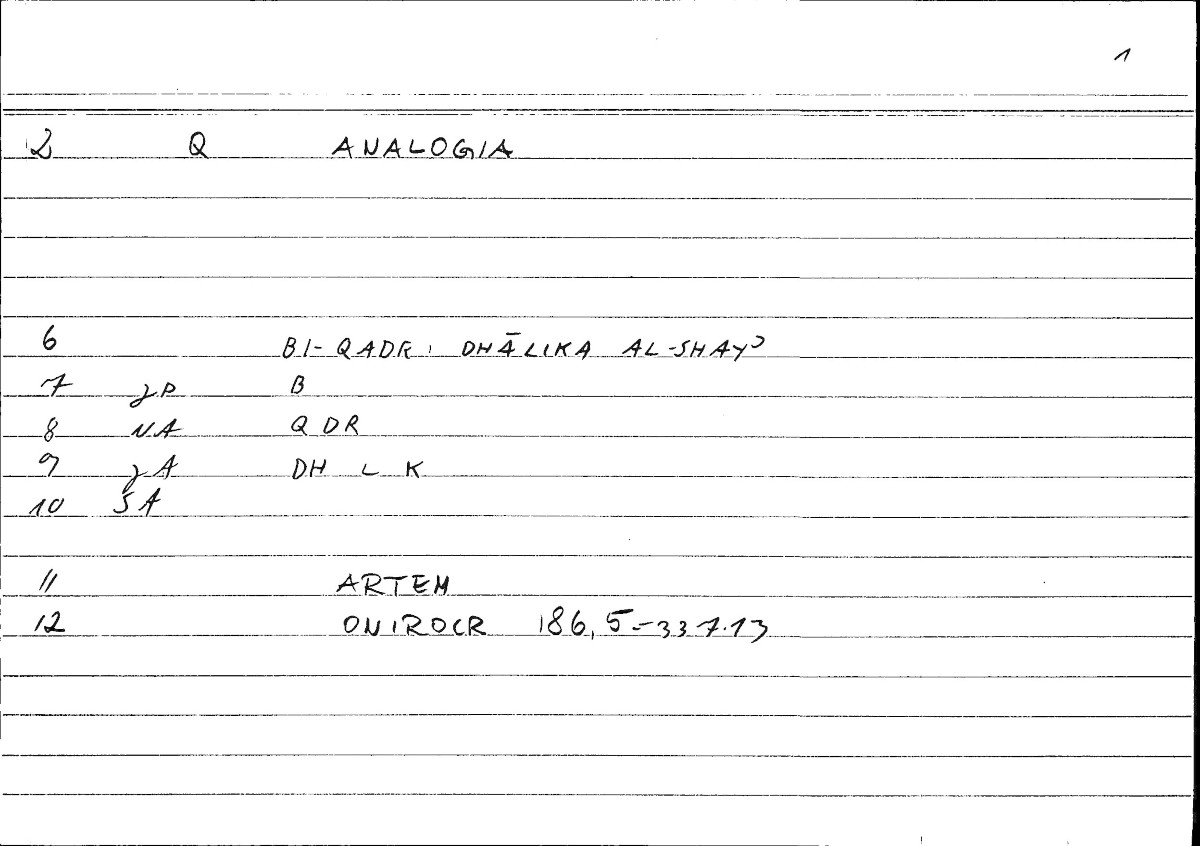 1
2 Q ANALOGIA
6 BI-QADRI DHĀLIKA AL-SHAYʾ
7 JP B
8 NA QDR
9 JA DH L K
10 SA
11 ARTEM
12 ONIROCR 186,5=337.13